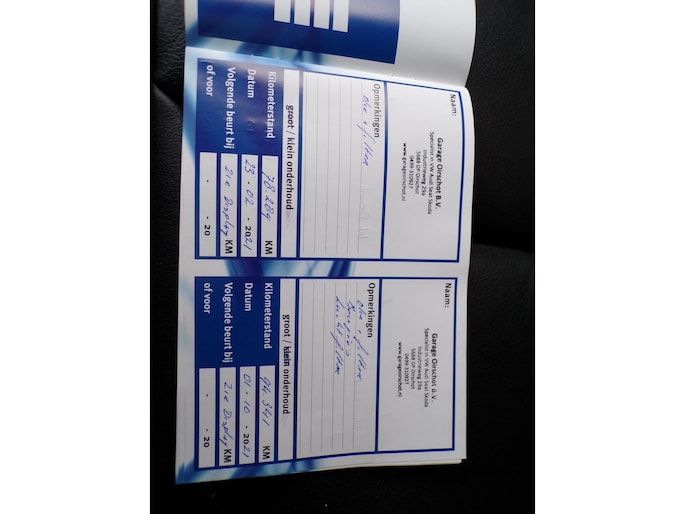 Naam:
Garage Oirschot B.V.
Specialist in VW Audi Seat Skoda
Industrieweg 29a
5688 DP Oirschot
0499-310927
www.garageoirschot.nl
Opmerkingen
olie + filter
groot / klein onderhoud
Kilometerstand 78.289 KM
Datum 23 - 02 - 2021
Volgende beurt bij zie Display KM
of voor - - 20
Naam:
Garage Oirschot B.V.
Specialist in VW Audi Seat Skoda
Industrieweg 29a
5688 DP Oirschot
0499-310927
www.garageoirschot.nl
Opmerkingen
olie + filter
Bougies
luchtfilter
groot / klein onderhoud
Kilometerstand 94 341 KM
Datum 01 - 10 - 2021
Volgende beurt bij zie Display KM
of voor - - 20